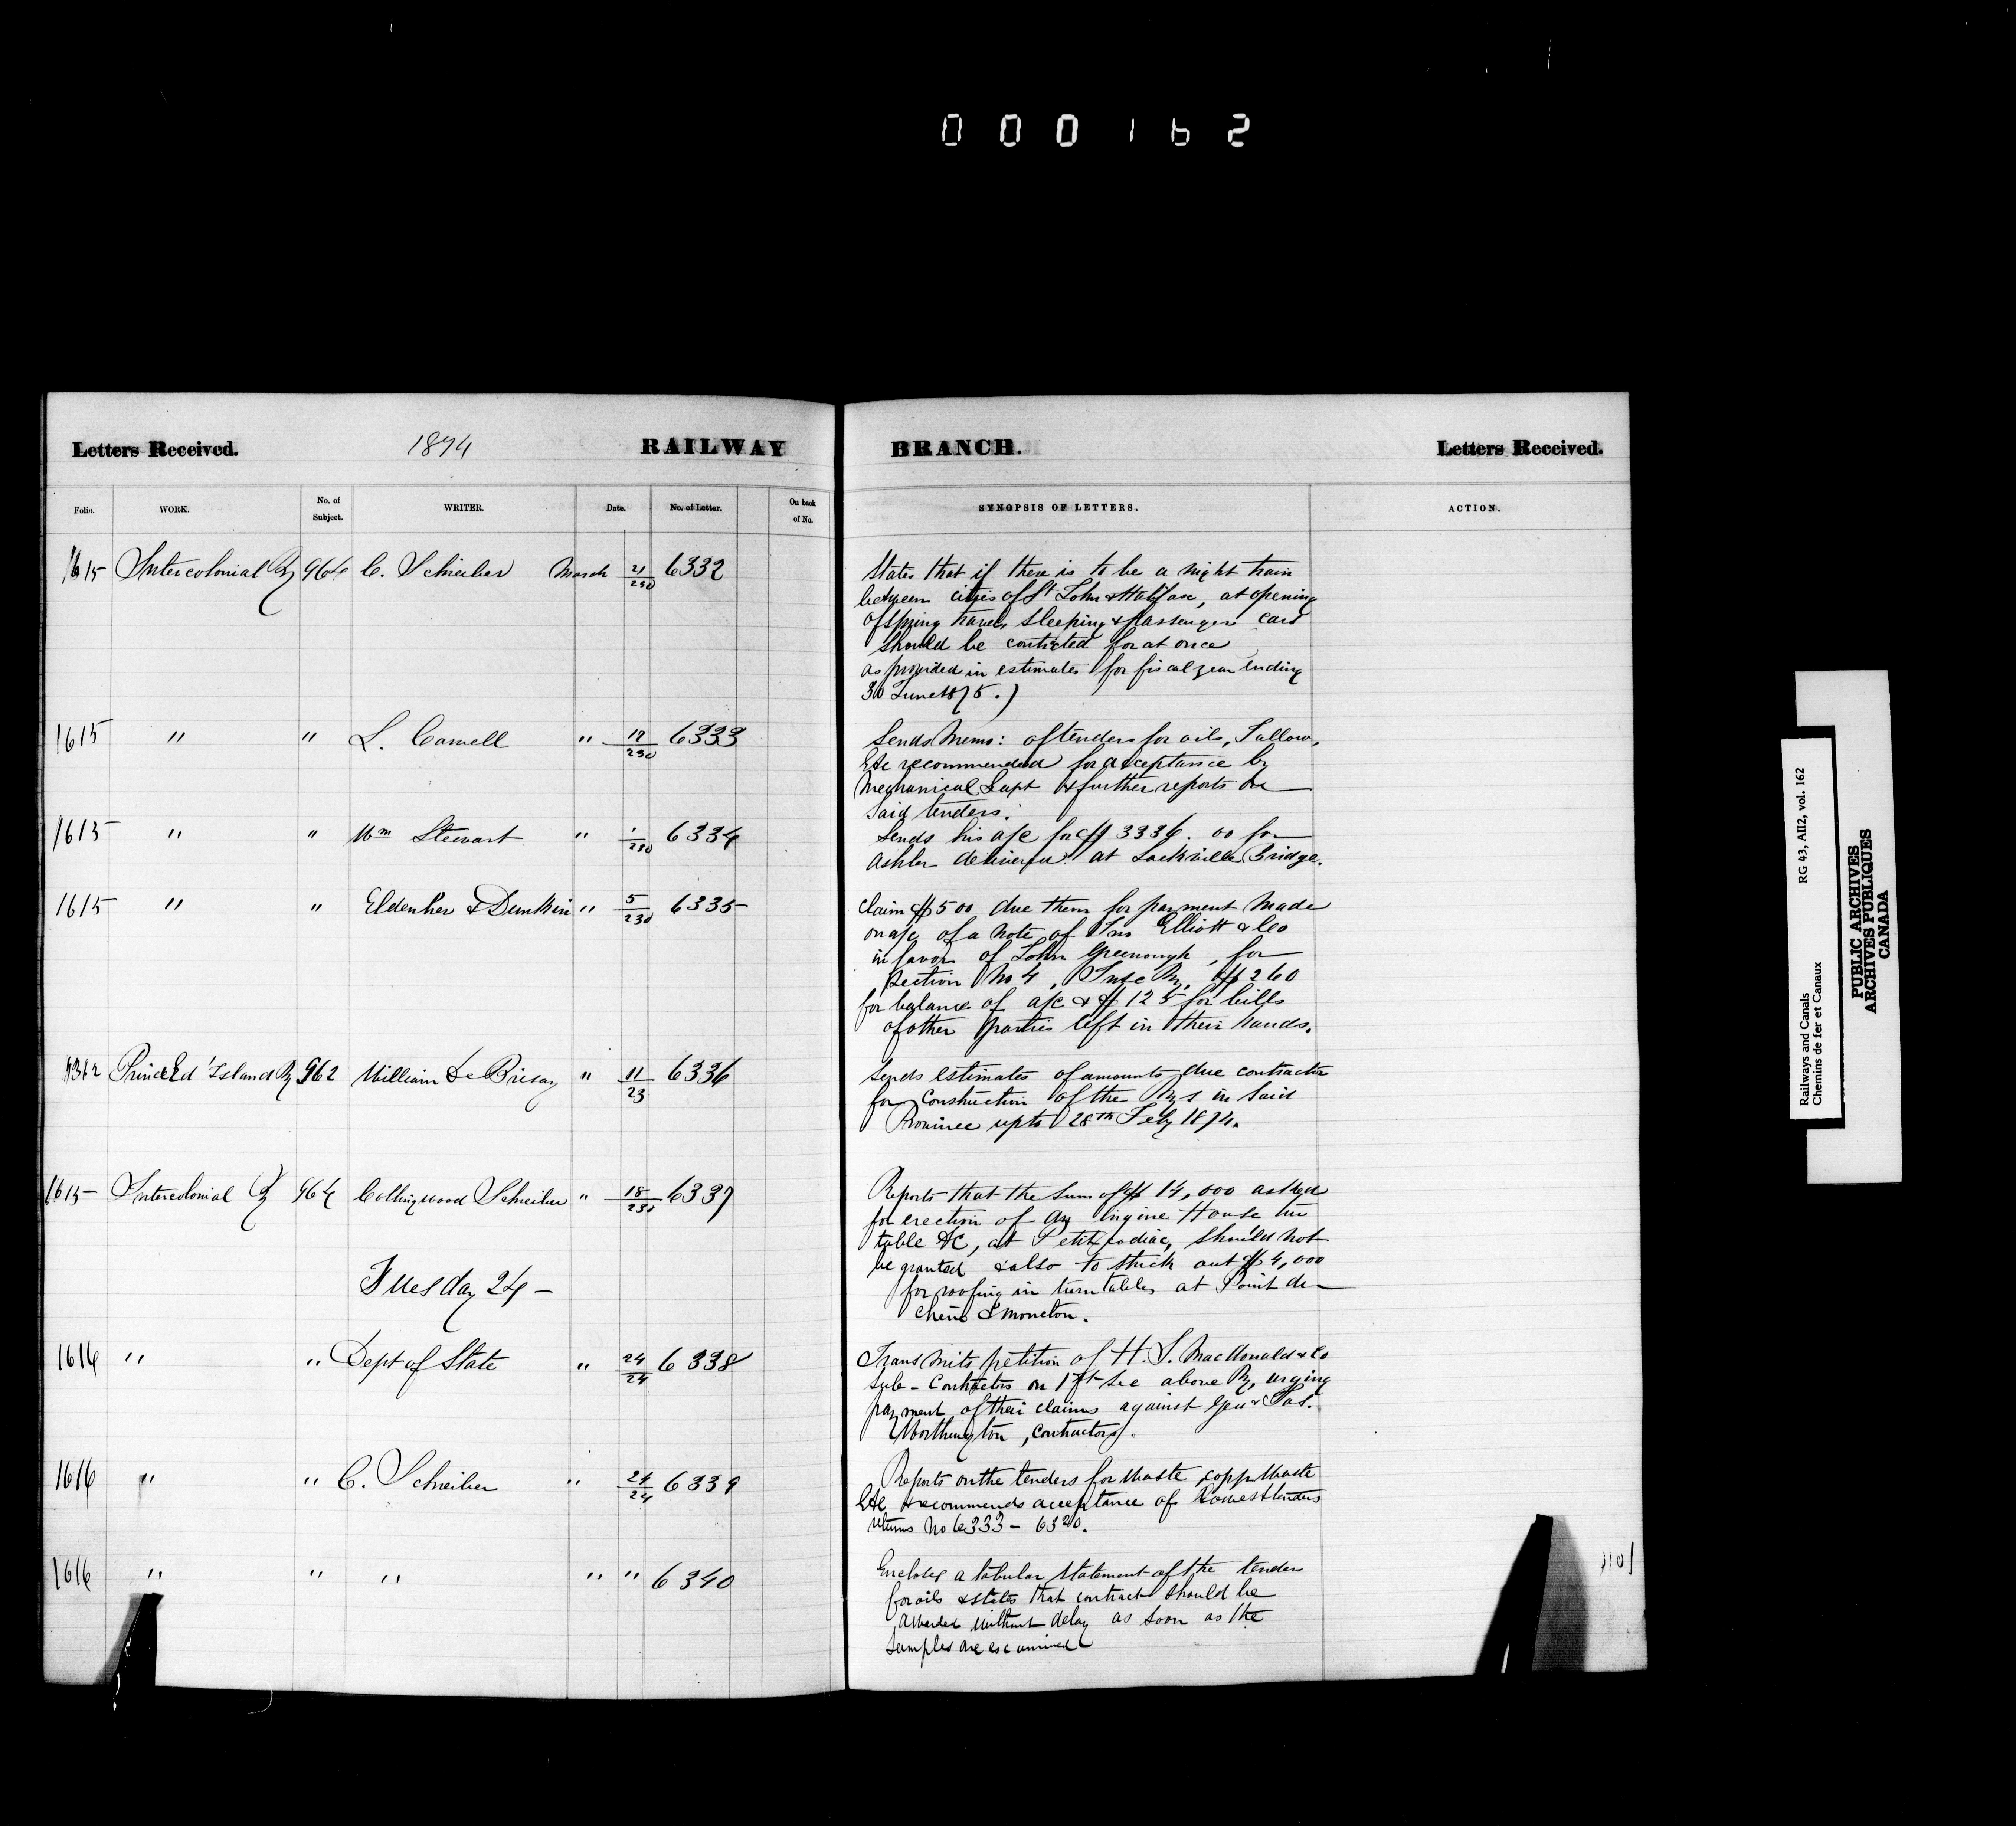 000162
Letters Received. 1874 RAILWAY BRANCH. Letters Received.
Folio. WORK. No. of Subject. WRITER. Date. No. of Letter. On back of No. SYNOPSIS OF LETTERS. ACTION.
1615 Intercolonial Ry 964 C. Schreiber March 21/230 6332
States that if there is to be a night train
between cities of St John & Halifax, at opening
of spring travel, sleeping & passenger cars
should be contracted for at once
as provided in estimates for fiscal year ending
30 June 1875.)
1615 " " L. Carvell " 12/230 6333
Sends Memo: of tenders for oils, Tallow,
Etc recommended for acceptance by
Mechanical Supt & further reports on
said tenders.
1615 " " Wm Stewart " 1/230 6334
Sends his a/c for $3336.00 for
ashler delivered at Sackville Bridge.
1615 " " & Dunkin " 5/230 6335
Claim $500 due them for payment made
on a/c of a note of Jno Elliott & Co
in favor of John Greenough, for
Section No 4, Ry, $260
for balance of a/c & $125 for bills
of other parties left in their hands.
Prince Ed Island Ry 962 William De Brisay " 11/23 6336
Sends estimates of amounts due contractor
for construction of the Rys in said
Province up to 28th Feby 1874.
1615 Intercolonial Ry 964 Collingwood Schreiber " 18/230 6337
Reports that the sum of $14,000 asked
for erection of an Engine House
table &c, at Petitcodiac, should not
be granted & also to strick out $4,000
for roofing in turn tables at Point du
Chene & Moncton.
Tuesday 24 -
1616 " " Dept of State " 24/24 6338
Transmits petition of H. S. MacDonald & Co
Sub-Contractors on 1st Sec above Ry, urging
payment of their claims against Geo & Jas.
Worthington, Contractors.
1616 " " C. Schreiber " 24/24 6339
Reports on the tenders for Waste copper Waste
Etc & recommends acceptance of lowest tenders
returns No 6333 - 6320.
1616 " " " " " 6340
Encloses a tabular statement of the tenders
for oils & states that contract should be
awarded without delay as soon as the
samples are examined
Railways and Canals RG 43, AII2, vol. 162
Chemins de fer et Canaux
PUBLIC ARCHIVES
ARCHIVES PUBLIQUES
CANADA